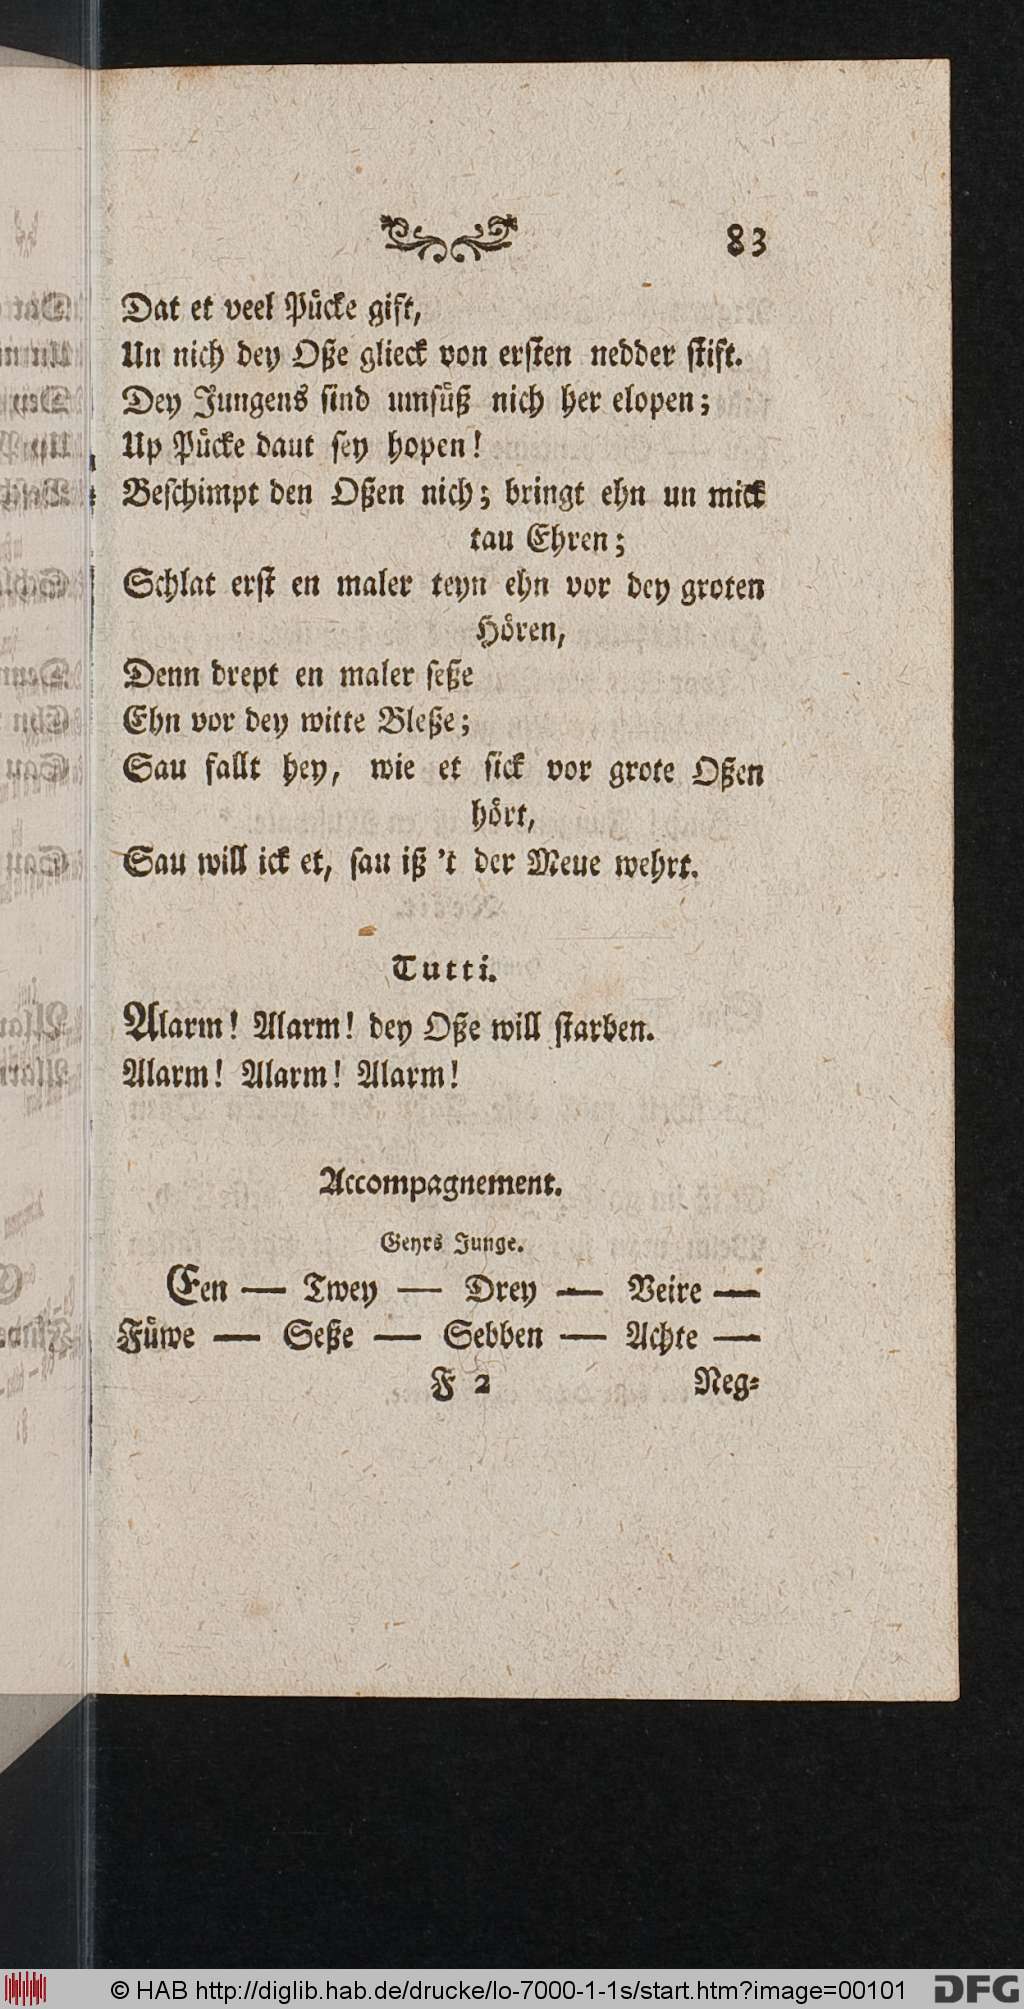 83
Dat et veel Pücke gift,
Un nich dey Oße glieck von ersten nedder stift.
Dey Jungens sind umsüß nich her elopen;
Up Pücke daut sey hopen!
Beschimpt den Oßen nich; bringt ehn un mick
tau Ehren;
Schlat erst en maler teyn ehn vor dey groten
Hören,
Denn drept en maler seße
Ehn vor dey witte Bleße;
Sau fallt hey, wie et sick vor grote Oßen
hört,
Sau will ick et, sau iß 't der Meue wehrt.
Tutti.
Alarm! Alarm! dey Oße will starben.
Alarm! Alarm! Alarm!
Accompagnement.
Geyrs Junge.
Een — Twey — Drey — Veire —
Füwe — Seße — Sebben — Achte —
F 2 Neg=
© HAB http://diglib.hab.de/drucke/lo-7000-1-1s/start.htm?image=00101 DFG